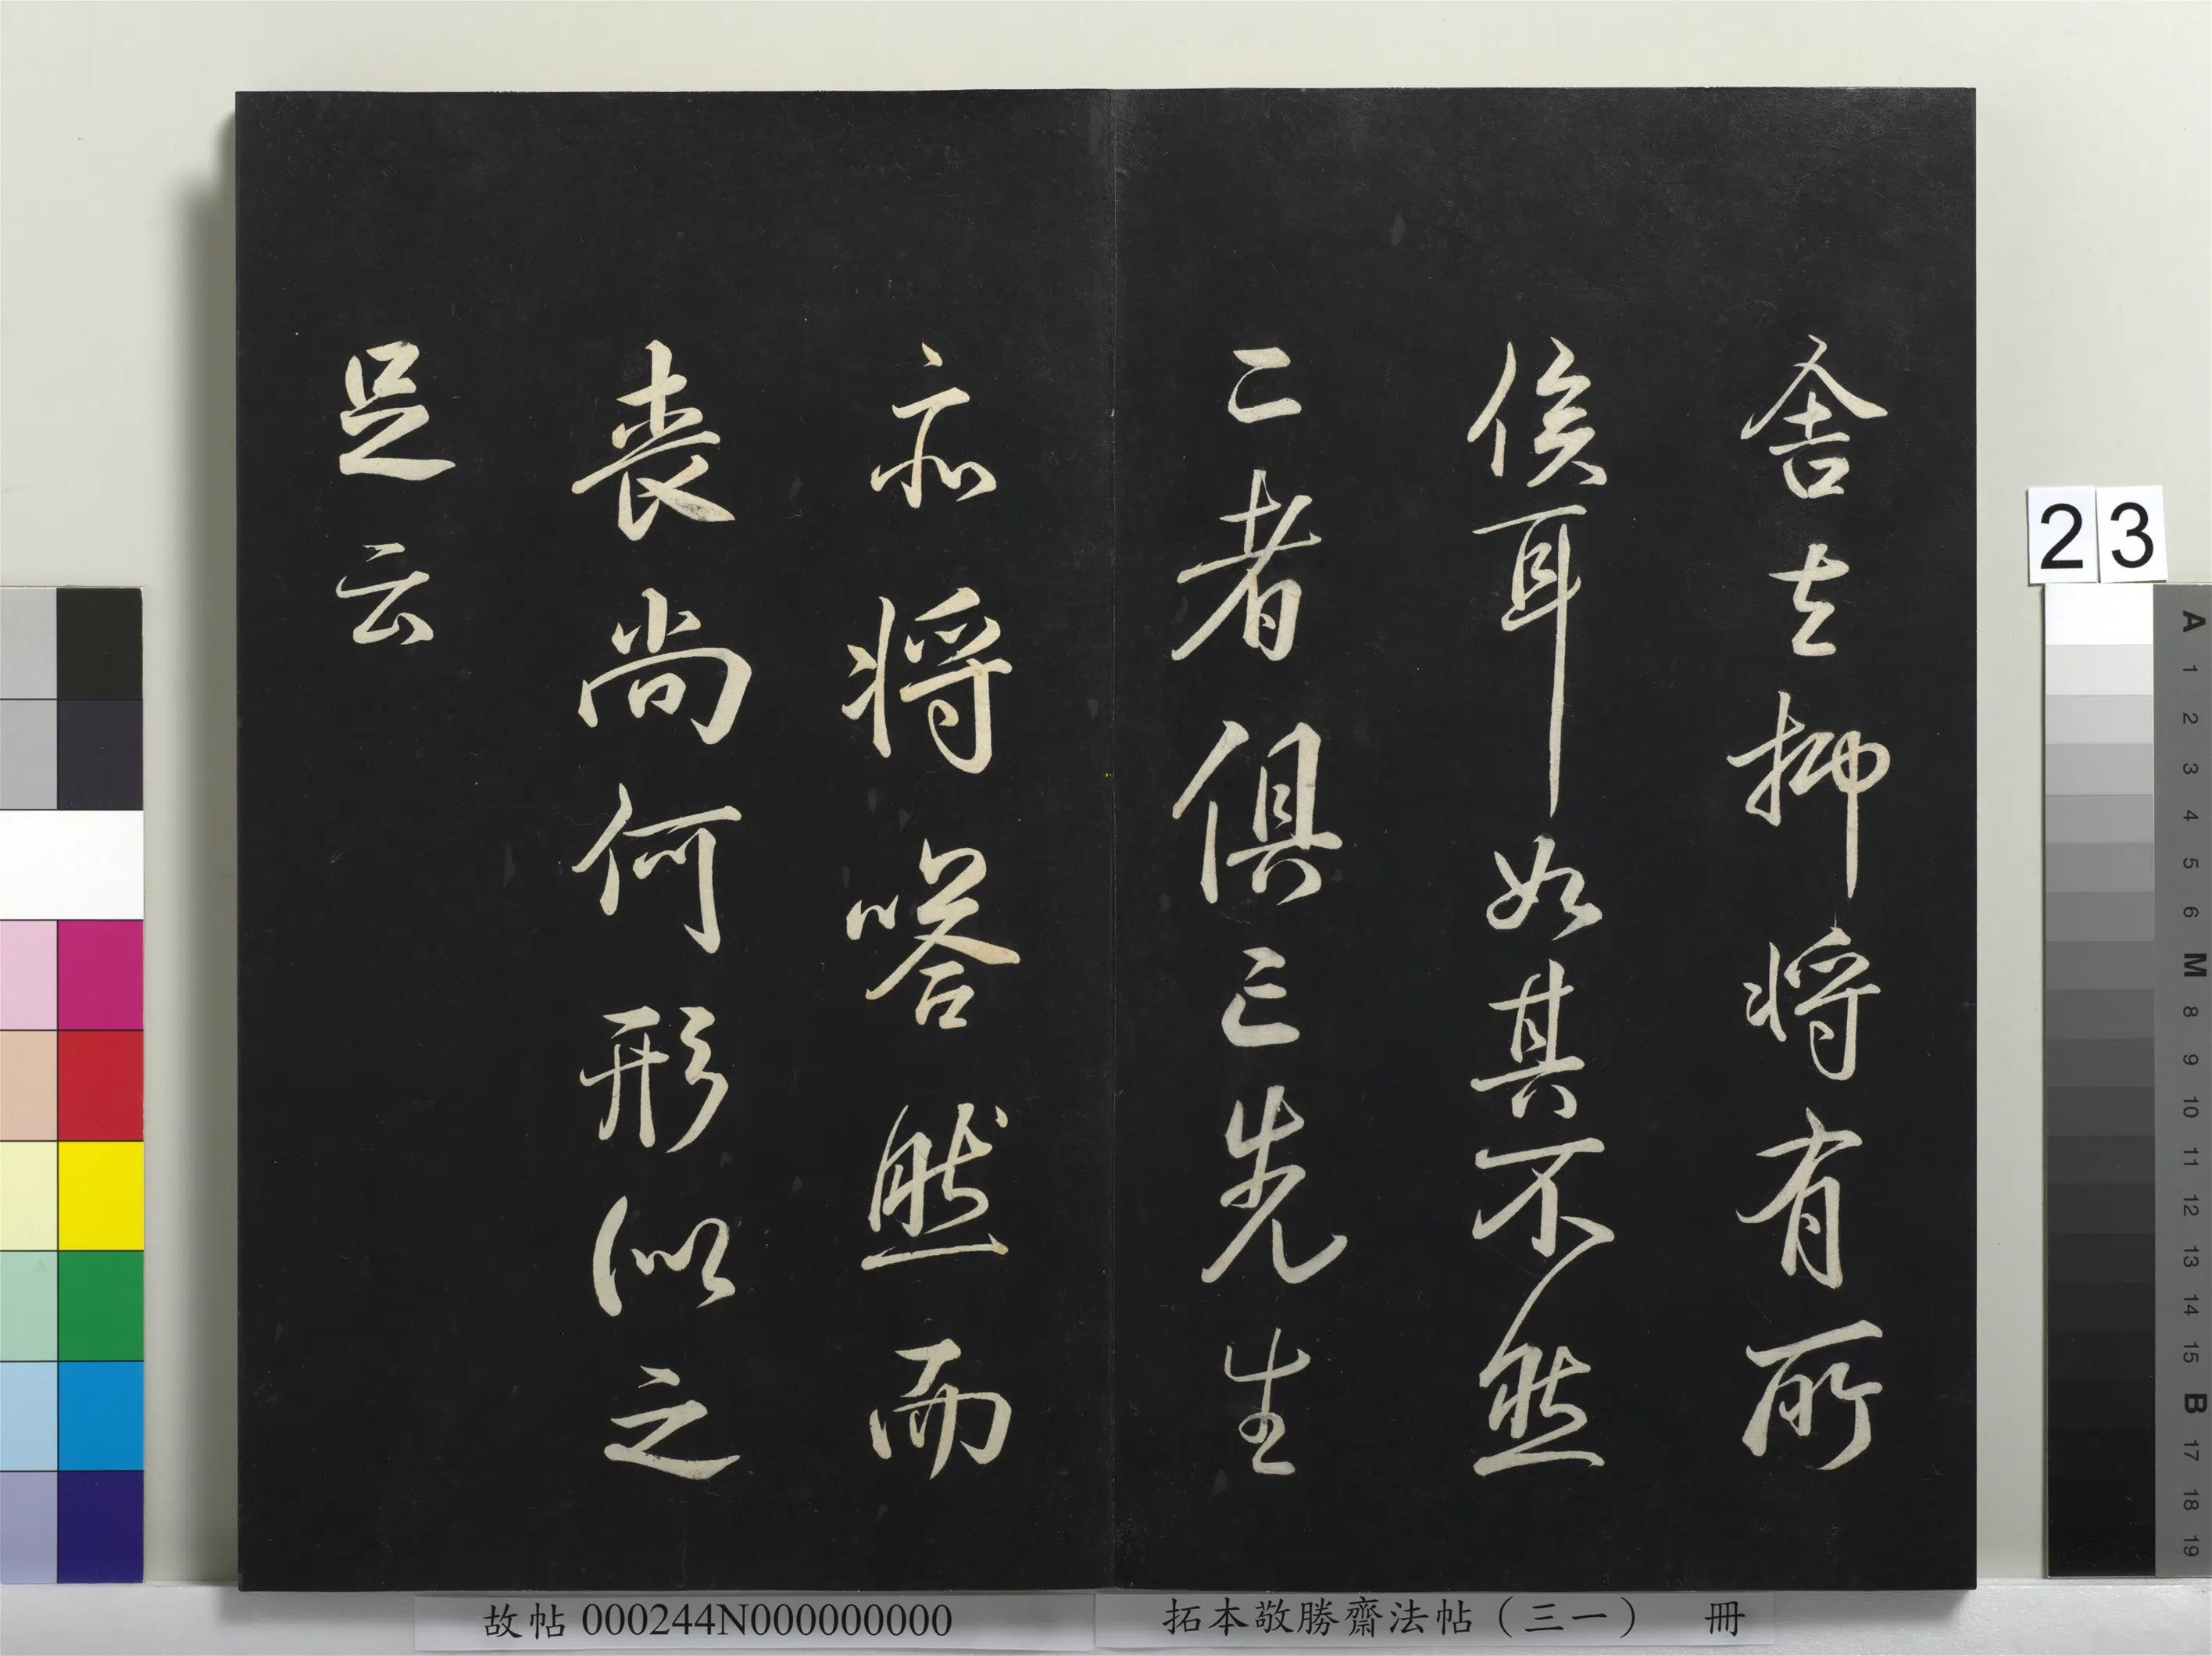 舍去抑將有所
俟耳如其不然
二者俱亡先生
亦將嗒然而
喪尚何形似之
足云
23
故帖 000244N000000000
拓本敬勝齋法帖（三一） 冊
A 1 2 3 4 5 6 M 8 9 10 11 12 13 14 15 B 17 18 19